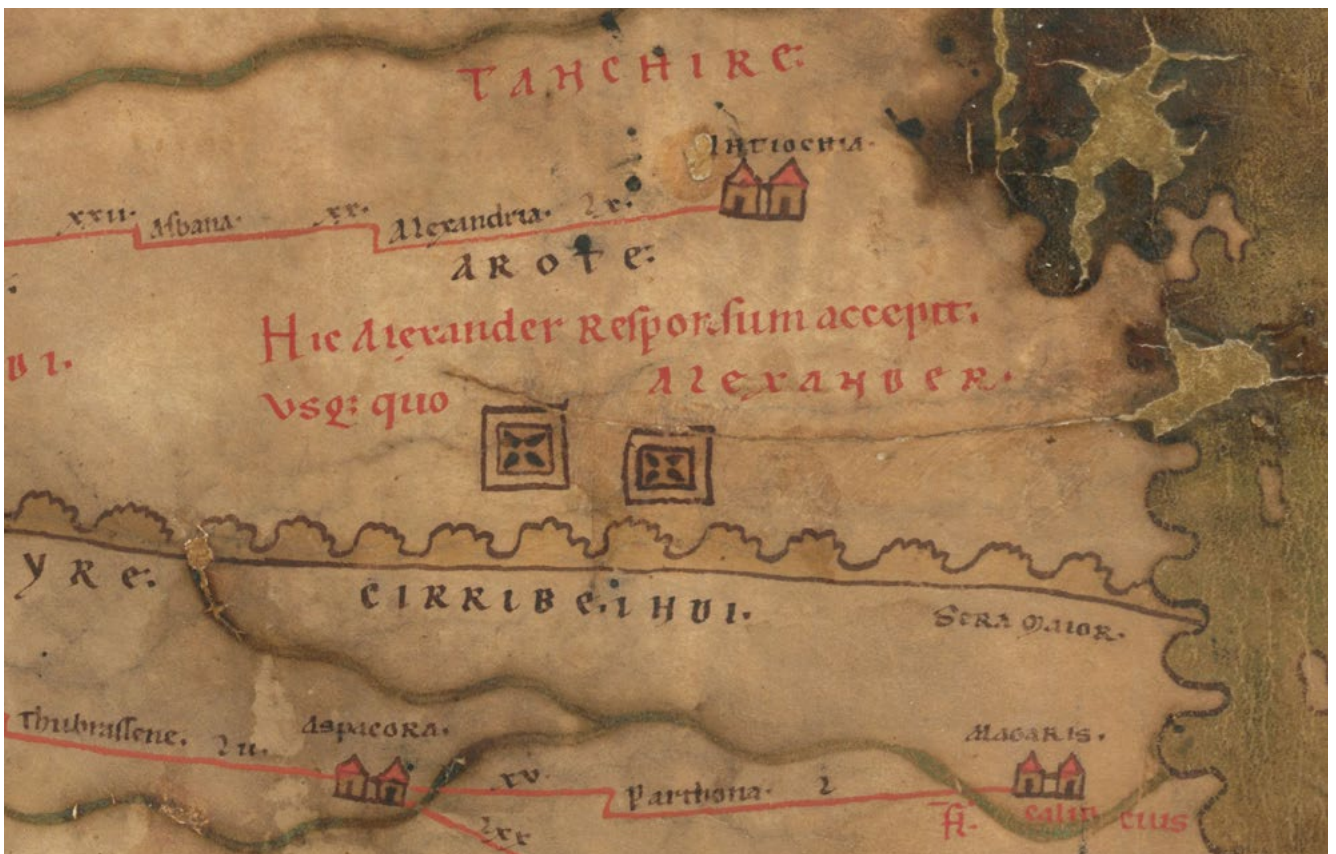 TANCHIRE:
ANTIOCHIA.
XXII. Asbana. XX. Alexandria.
AROTE:
Hic Alexander Responsum accepit.
VSQ: quo ALEXANDER.
YRE:
CIRRIBE.INDI.
SERA MAIOR.
Thubrassene. ASPACORA. MAGARIS.
XV. Parthona.